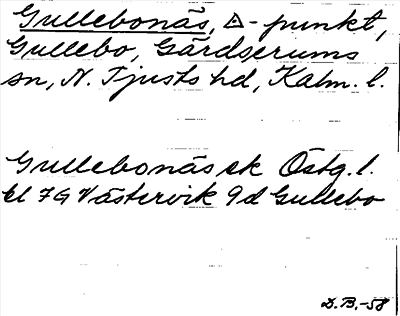 Gullebonäs, △-punkt,
Gullebo, Gärdserums
sn, N. Tjusts hd, Kalm. l.
Gullebonäs ek Östg. l.
bl 7G Västervik 9d Gullebo
D.B.-58